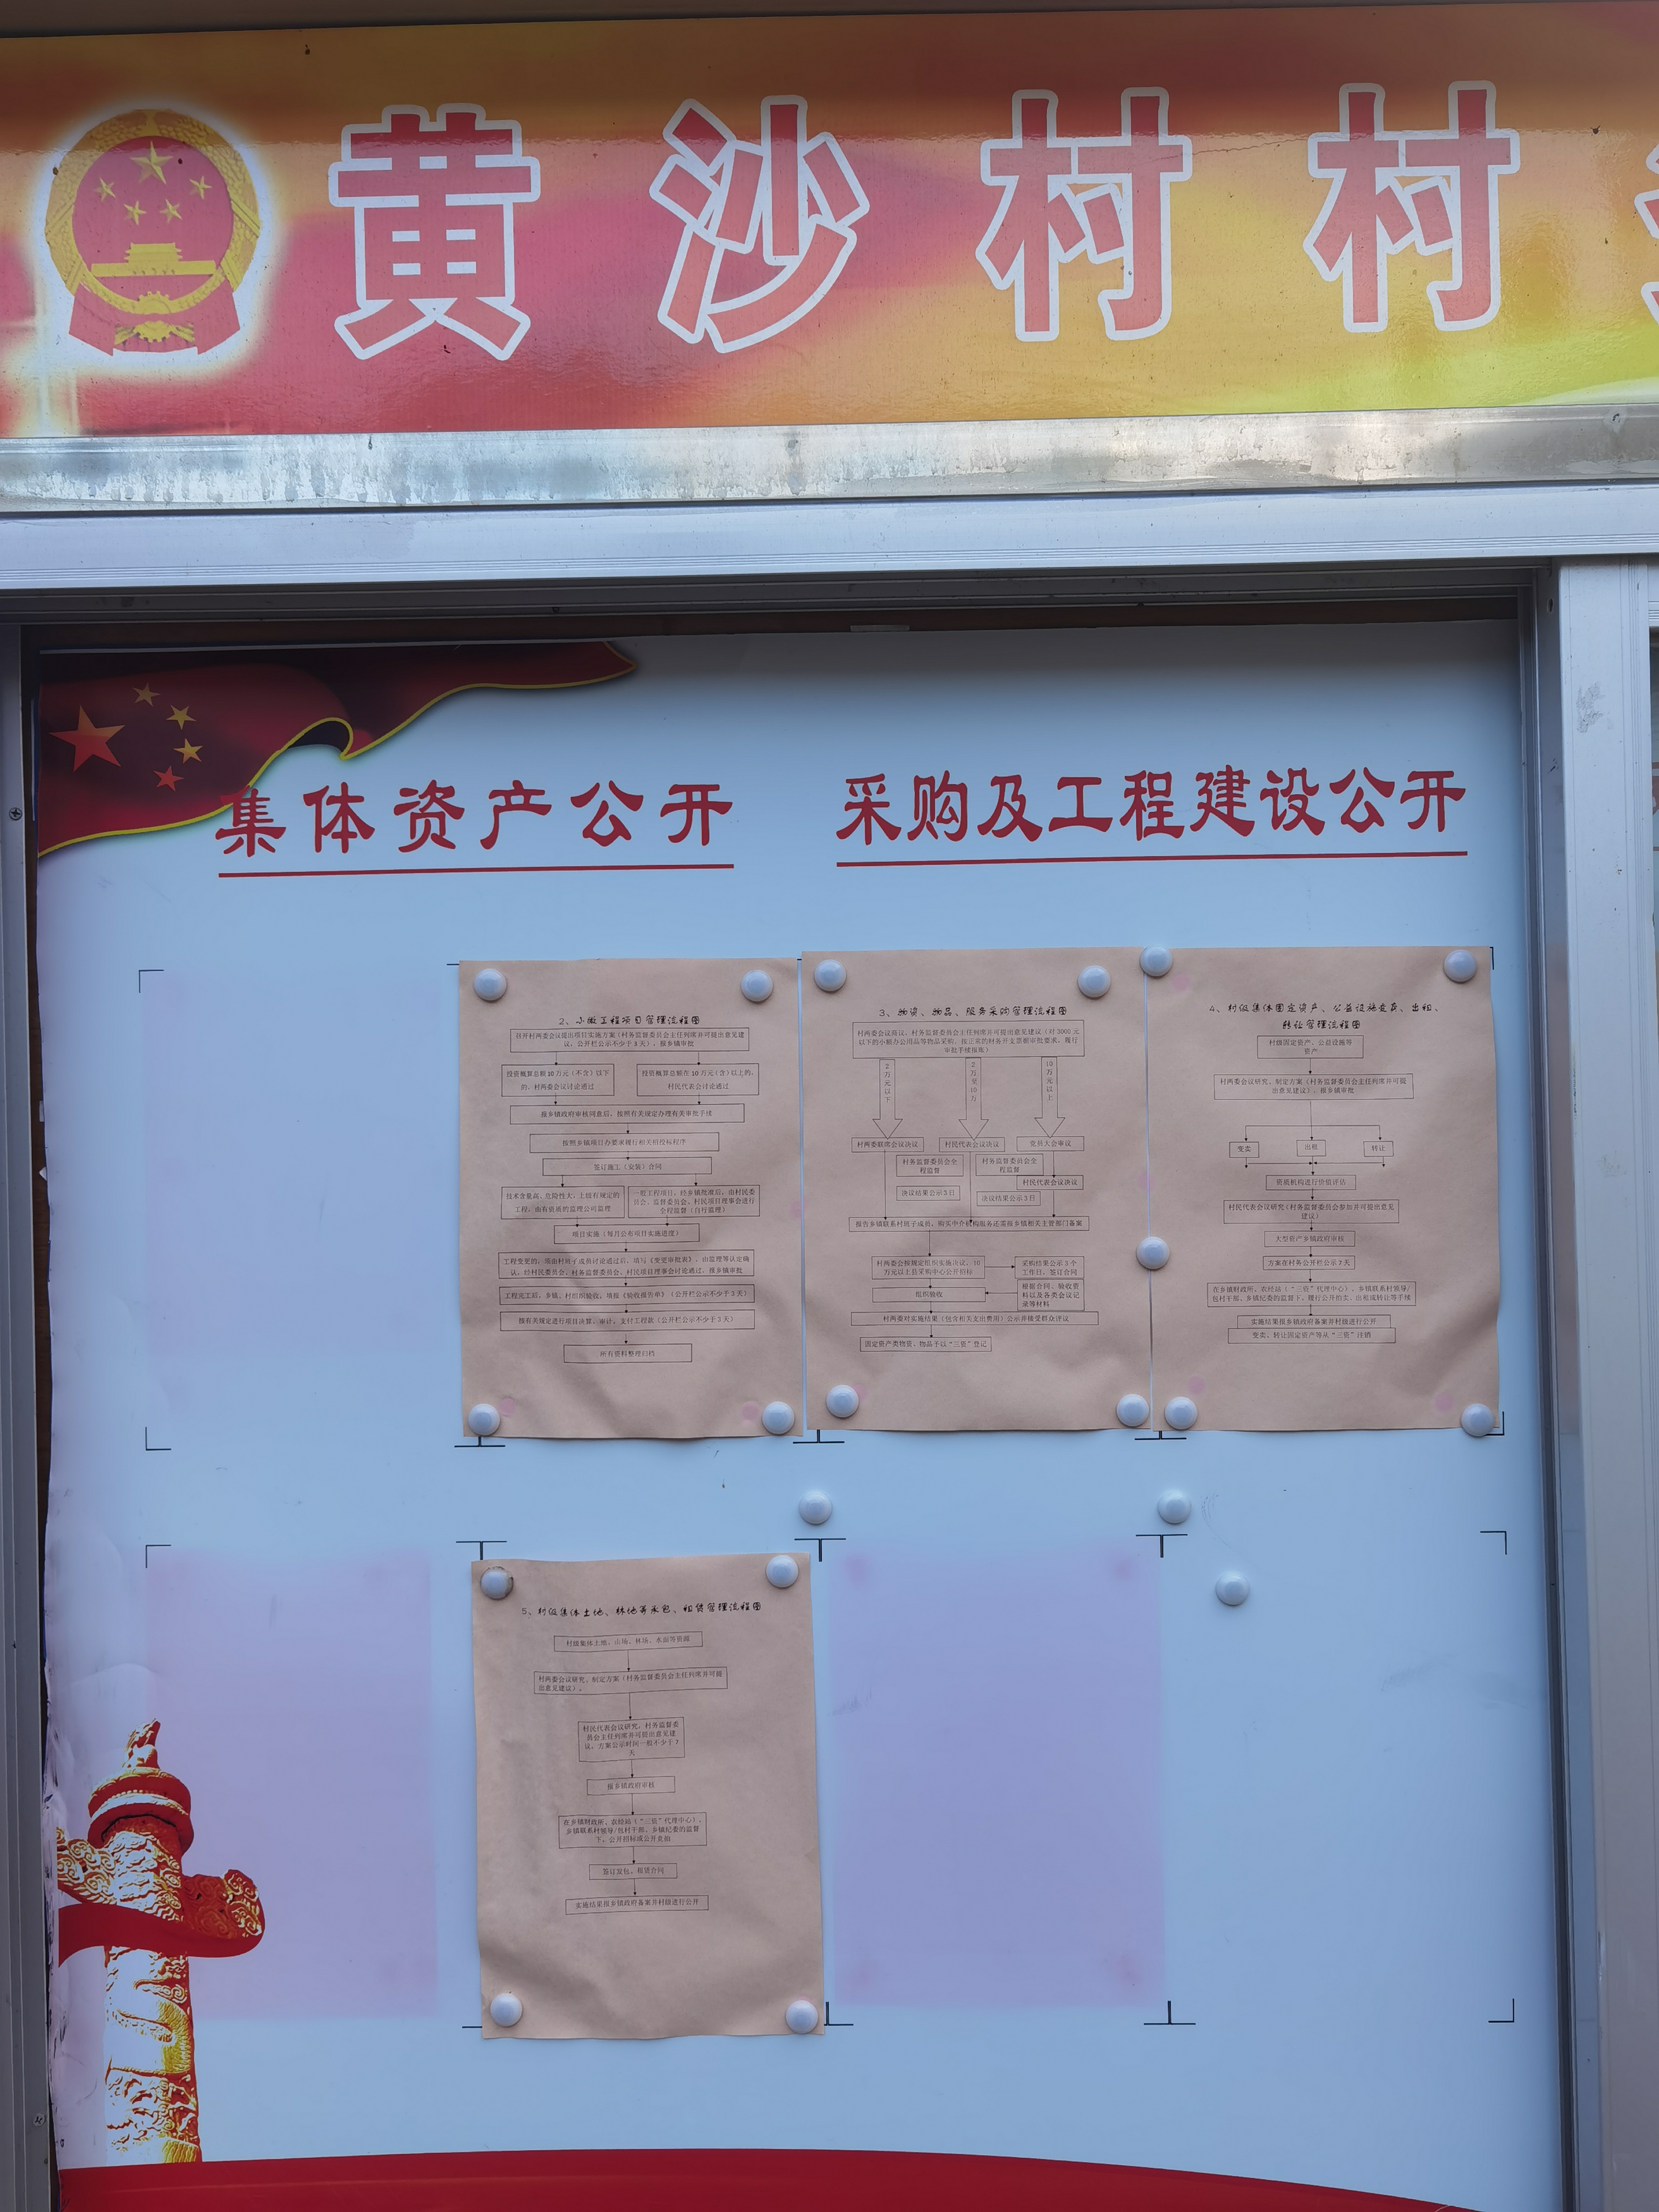 黄沙村村
集体资产公开
采购及工程建设公开
2、小微工程项目管理流程图
召开村两委会议提出项目实施方案（村务监督委员会主任列席并可提出意见建
议，公开栏公示不少于3天），报乡镇审批
投资概算总额10万元（不含）以下
的，村两委会议讨论通过
投资概算总额在10万元（含）以上的，
村民代表会讨论通过
报乡镇政府审核同意后，按照有关规定办理有关审批手续
按照乡镇项目办要求履行相关招投标程序
签订施工（安装）合同
技术含量高、危险性大、上级有规定的
工程，由有资质的监理公司监理
一般工程项目，经乡镇批准后，由村民委
员会、监督委员会、村民项目理事会进行
全程监督（自行监理）
项目实施（每月公布项目实施进度）
工程变更的，须由村班子成员讨论通过后，填写《变更审批表》，由监理等认定确
认，经村民委员会、村务监督委员会、村民项目理事会讨论通过，报乡镇审批
工程完工后，乡镇、村组织验收，填报《验收报告单》（公开栏公示不少于3天）
按有关规定进行项目决算、审计，支付工程款（公开栏公示不少于3天）
所有资料整理归档
3、物资、物品、服务采购管理流程图
村两委会议商议，村务监督委员会主任列席并可提出意见建议（对3000元
以下的小额办公用品等物品采购，按正常的财务开支票据审批要求，履行
审批手续报账）
2万元以下
2万至10万
10万元以上
村两委联席会议决议
村民代表会议决议
党员大会审议
村务监督委员会全
程监督
村务监督委员会全
程监督
村民代表会议决议
决议结果公示3日
决议结果公示3日
报告乡镇联系村班子成员，购买中介机构服务还需报乡镇相关主管部门备案
村两委会按规定组织实施决议，10
万元以上县采购中心公开招标
采购结果公示3个
工作日，签订合同
组织验收
根据合同、验收资
料以及各类会议记
录等材料
村两委对实施结果（包含相关支出费用）公示并接受群众评议
固定资产类物资、物品予以“三资”登记
4、村级集体固定资产、公益设施变卖、出租、
转让管理流程图
村级固定资产、公益设施等
资产
村两委会议研究，制定方案（村务监督委员会主任列席并可提
出意见建议），报乡镇审批
变卖
出租
转让
资质机构进行价值评估
村民代表会议研究（村务监督委员会参加并可提出意见
建议）
大型资产乡镇政府审核
方案在村务公开栏公示7天
在乡镇财政所、农经站（“三资”代理中心）、乡镇联系村领导/
包村干部、乡镇纪委的监督下，履行公开拍卖、出租或转让等手续
实施结果报乡镇政府备案并村级进行公开
变卖、转让固定资产等从“三资”注销
5、村级集体土地、林地等承包、租赁管理流程图
村级集体土地、山场、林场、水面等资源
村两委会议研究，制定方案（村务监督委员会主任列席并可提
出意见建议）。
村民代表会议研究，村务监督委
员会主任列席并可提出意见建
议，方案公示时间一般不少于7
天
报乡镇政府审核
在乡镇财政所、农经站（“三资”代理中心）、
乡镇联系村领导/包村干部、乡镇纪委的监督
下，公开招标或公开竞拍
签订发包、租赁合同
实施结果报乡镇政府备案并村级进行公开